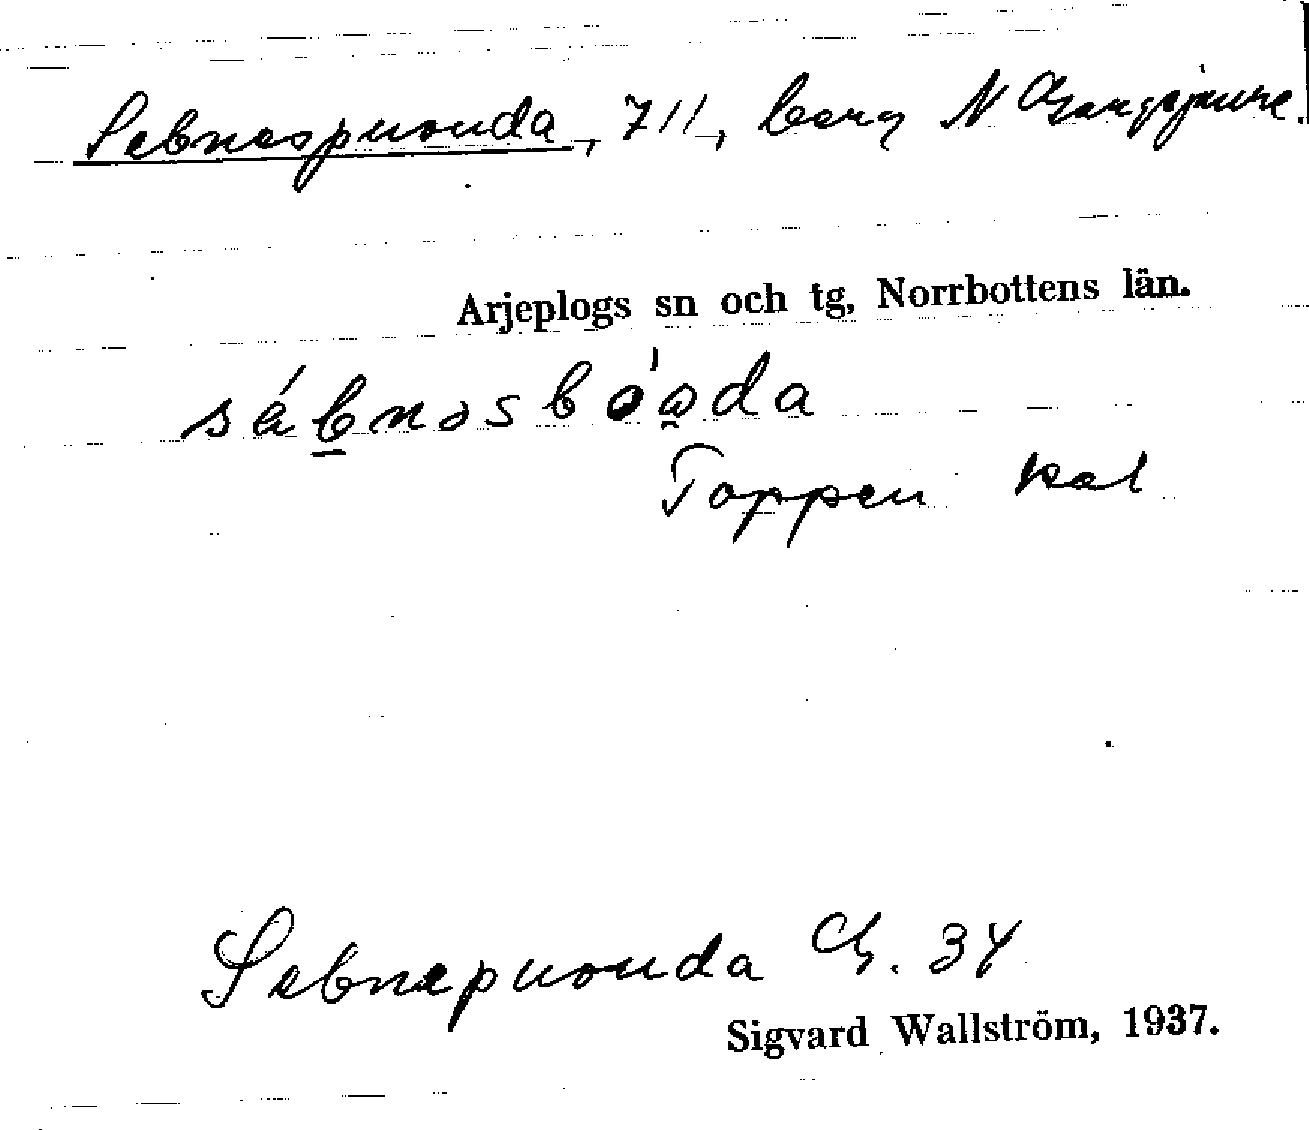 Sebnespuouda, 711, berg N
Arjeplogs sn och tg, Norrbottens län.
Toppen kal
Sebnepuouda G. 34
Sigvard Wallström, 1937.